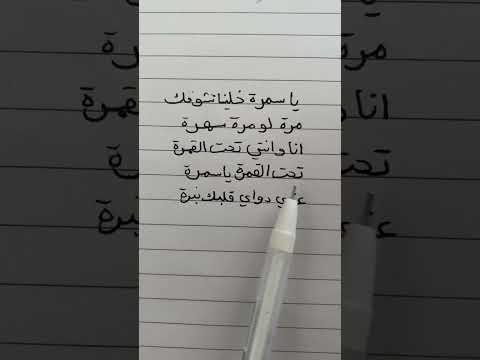 يا سمرة خلينا نشوفك
مرة لو مرة سهرة
انا وانتي تحت القمرة
تحت القمرة يا سمرة
دواي قلبك نبرة